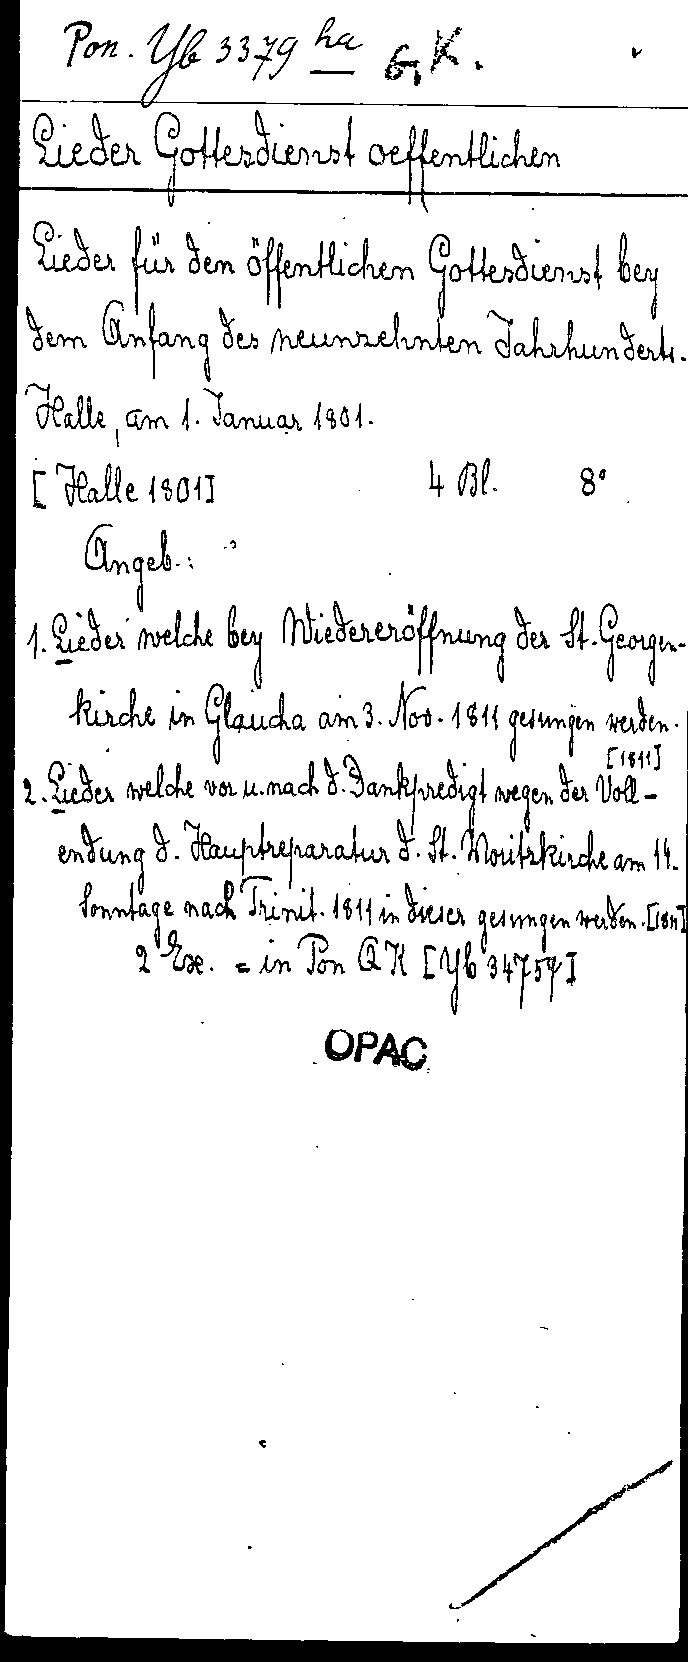 Pon. Yb 3379 ha G.K.
Lieder Gottesdienst oeffentlichen
Lieder für den öffentlichen Gottesdienst bey
dem Anfang des neunzehnten Jahrhunderts.
Halle, am 1. Januar 1801.
[Halle 1801] 4 Bl. 8°
Angeb.:
1. Lieder welche bey Wiedereröffnung der St. Georgen-
kirche in Glaucha am 3. Nov. 1811 gesungen werden.
[1811]
2. Lieder welche vor u. nach d. Dankpredigt wegen der Voll-
endung d. Hauptreparatur d. St. Moritzkirche am 14.
Sonntage nach Trinit. 1811 in dieser gesungen werden. [1811]
2 Ex. = in Pon QK [Yb 3475
OPAC